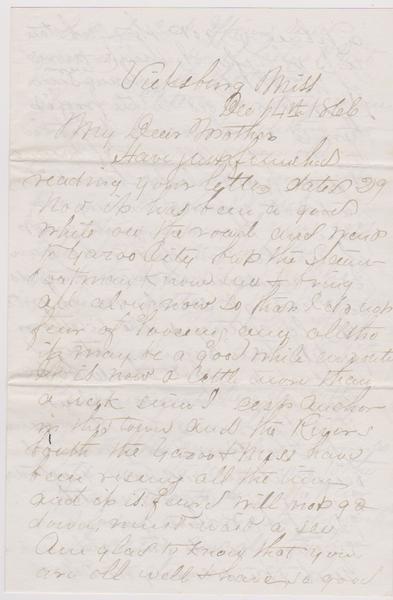 Vicksburg Miss
Dec 14th 1866
My Dear Mother
Have just finished
reading your letter dated 29
Nov it has been a good
while on the road and went
to Yazoo City but the Steam
boat man know me & bring
all along now so that I do not
fear of loosing any altho
it may be a good while
it is now a little more than
a week since I anchor
in this town and the Rivers
both the Yazoo & Miss have
been rising all the time
and up is I will not go
down must wait a
Am glad to know that you
are all well & have so good